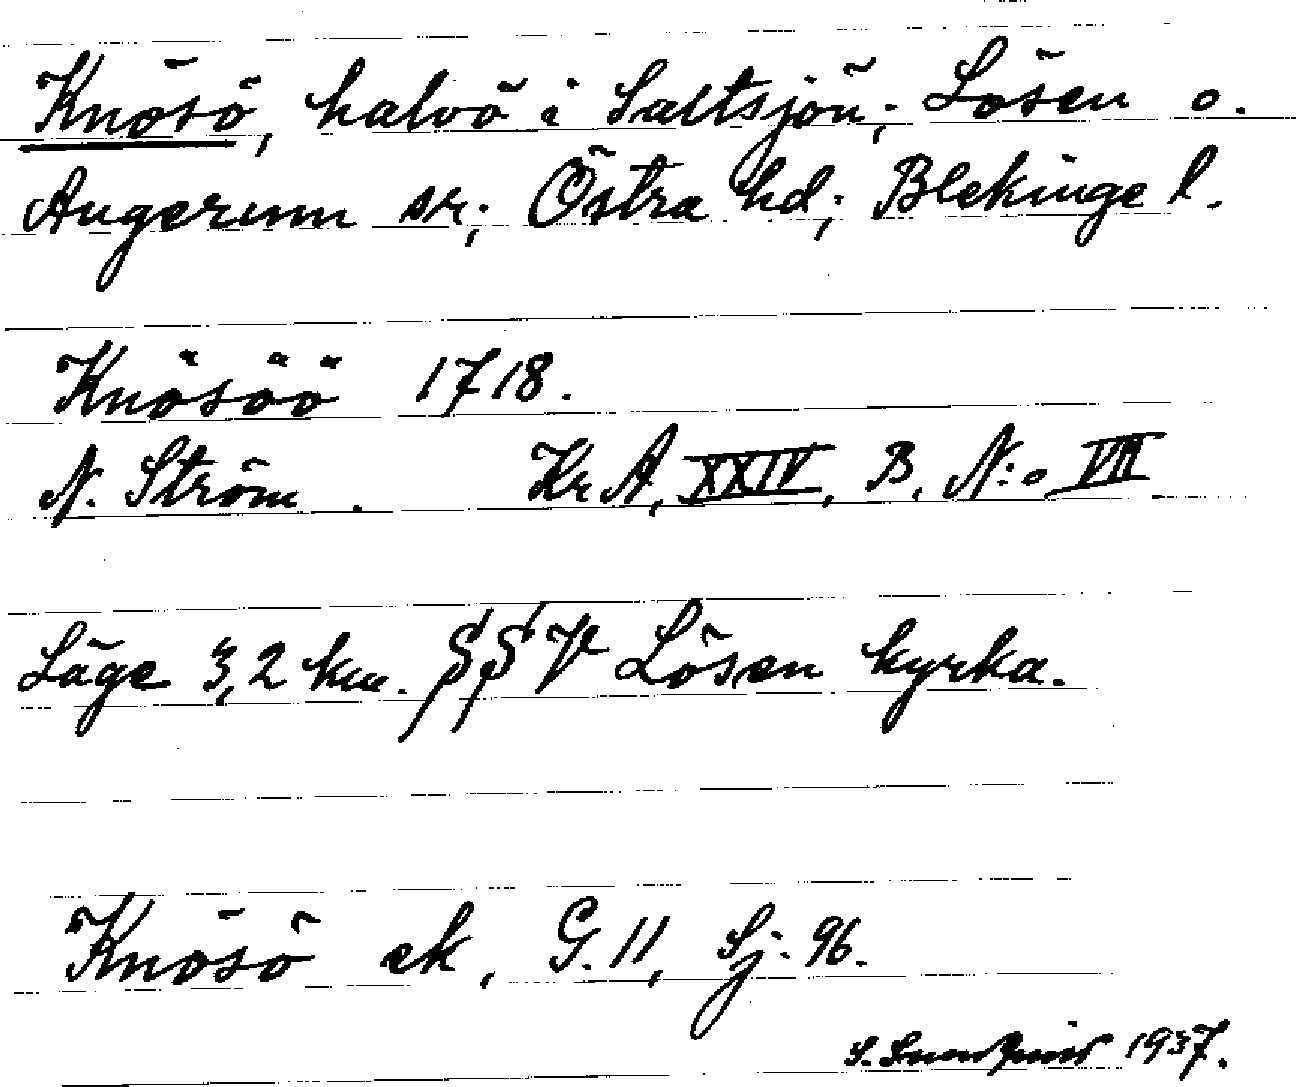 Knösö, halvö i Saltsjön; Lösen o.
Augerum sn; Östra hd; Blekinge l.
Knösöö 1718.
N. Ström. Kr A, XXIV, B, N:o VII
Läge 3,2 km. SSV Lösen kyrka.
Knösö ek, G. 11, Sj. 96.
S. 1937.